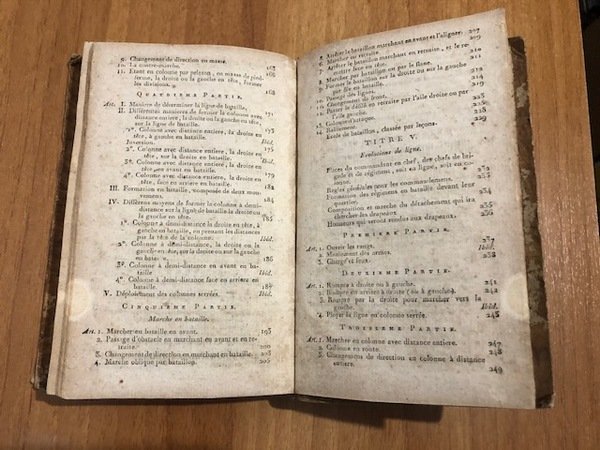 9. Changement de direction en masse.
10. La contre-marche. 165
11. Etant en colonne par peloton, en masse, de pied-ferme,
la droite ou la gauche en tête, former
les divisions. 168
QUATRIEME PARTIE.
Art. I. Maniere de déterminer la ligne de bataille. 171
II. Différentes manieres de former la colonne avec
distance entiere, la droite ou la gauche en tête,
sur la ligne de bataille. 173
1º. Colonne avec distance entiere, la droite en
tête, à gauche en bataille. Ibid.
Inversion. 175
2º. Colonne avec distance entiere, la droite en
tête, sur la droite en bataille.
3º. Colonne avec distance entiere, la droite en
tête, en avant en bataille. 179
4º. Colonne avec distance entiere, la droite en
tête, face en arriere en bataille.
III. Formation en bataille, composée de deux mouvemens.
IV. Différens moyens de former la colonne à demi-
distance sur la ligne de bataille la droite ou
la gauche en tête. 185
1º. Colonne à demi-distance, la droite en tête,
à gauche en bataille, en prenant les distances
par la tête de la colonne. Ibid.
2º. Colonne à demi-distance, la droite ou la
gauche en tête, sur la droite ou sur la gauche
en bataille. 186
3º. Colonne à demi-distance en avant en bataille
Ibid.
4º. Colonne à demi-distance face en arriere en
bataille. 187
V. Déploiement des colonnes serrées. Ibid.
CINQUIEME PARTIE.
Marche en bataille.
Art. 1. Marcher en bataille en avant. 195
2. Passage d'obstacle en marchant en avant et en retraite.
200
3. Changement de direction en marchant en bataille. 203
4. Marche oblique par bataillon. 205
5. Arrêter le bataillon marchant en avant et l'aligner. 207
6. Marcher en retraite. 209
7. Arrêter le bataillon marchant en retraite, et le remettre
face en tête.
8. Marcher par bataillon ou par le flanc.
9. Former le bataillon sur la droite ou sur la gauche
par file en bataille.
10. Passage des lignes.
11. Changement de front.
12. Passer le défilé en retraite par l'aile droite ou par
l'aile gauche.
13. Colonne d'attaque. 228
14. Ralliement. 229
Ecole de bataillon, classée par leçons. Ibid.
TITRE V.
Evolutions de ligne.
Places du commandant en chef, des chefs de brigade
et de régiment, soit en ligne, soit en colonne.
Regles générales pour les commandemens. Ibid.
Formation des régimens en bataille devant leur
quartier. 234
Composition et marche du détachement qui ira
chercher les drapeaux.
Honneurs qui seront rendus aux drapeaux. 236
PREMIERE PARTIE.
Art. 1. Ouvrir les rangs. 237
2. Maniement des armes. Ibid.
3. Charge et feux. 238
DEUXIEME PARTIE.
Art. 1. Rompre à droite ou à gauche. 241
2. Rompre en arriere à droite (ou à gauche). 242
3. Rompre par la droite pour marcher vers la
gauche. Ibid.
4. Ployer la ligne en colonne serrée. 245
TROISIEME PARTIE.
Art. 1. Marcher en colonne avec distance entiere. 247
2. Colonne en route. 248
3. Changemens de direction en colonne à distance
entiere. 249